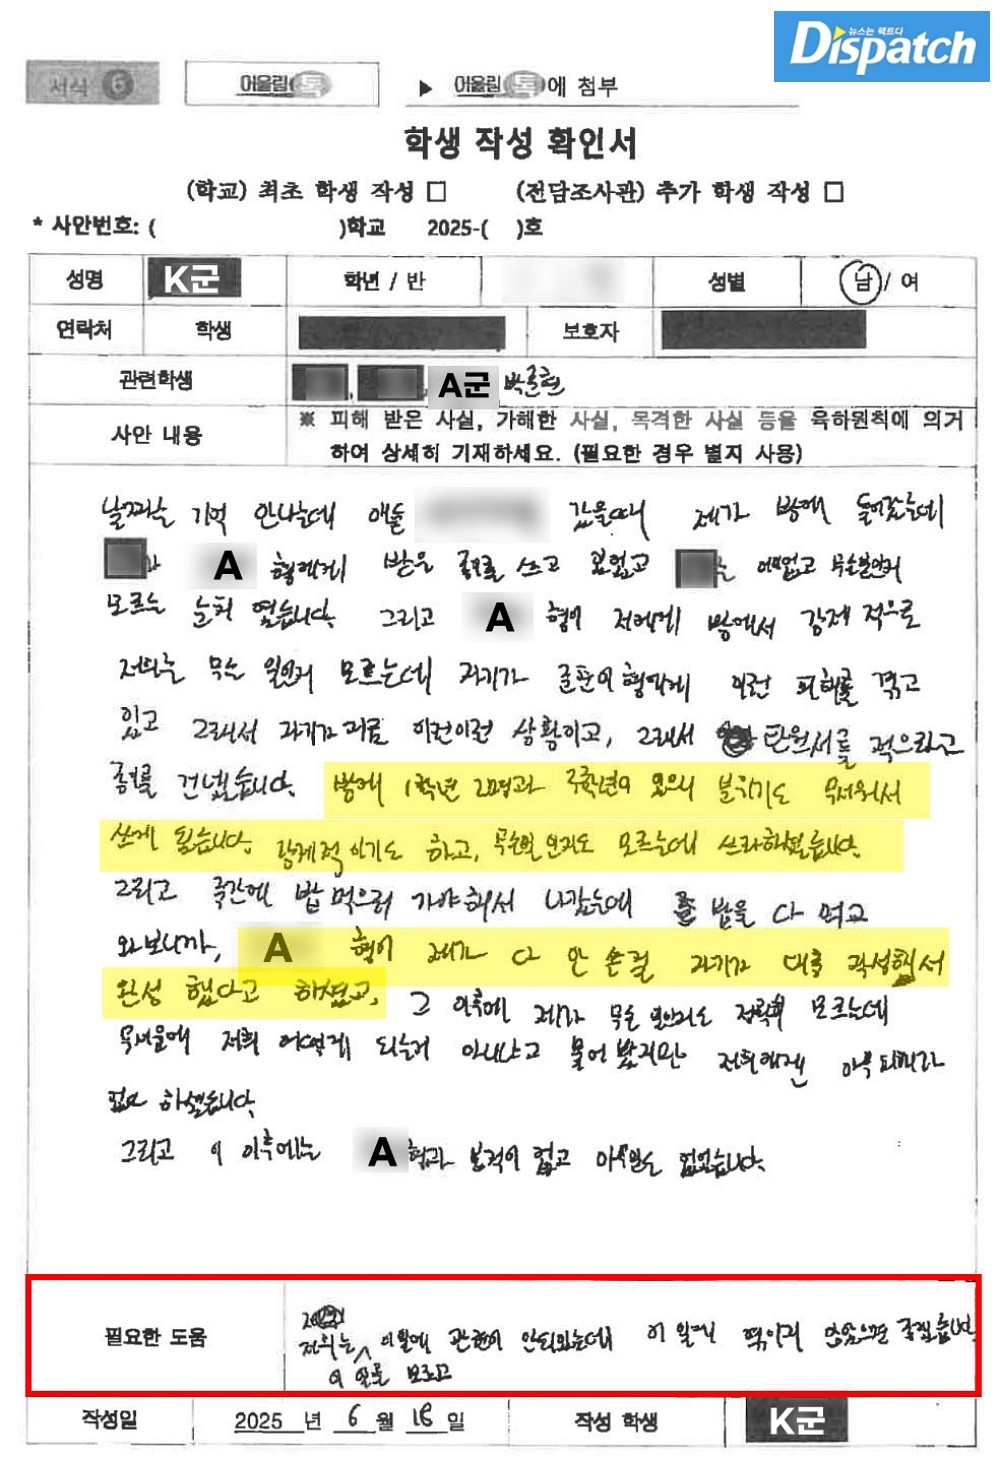 뉴스는 팩트다
Dispatch
서식 6
어울림 톡
▶ 어울림 톡에 첨부
학생 작성 확인서
(학교) 최초 학생 작성 □ (전담조사관) 추가 학생 작성 □
* 사안번호: ( )학교 2025-( )호
성명 K군 학년 / 반 성별 남 / 여
연락처 학생 보호자
관련학생 , , A군
사안 내용
※ 피해 받은 사실, 가해한 사실, 목격한 사실 등을 육하원칙에 의거
하여 상세히 기재하세요. (필요한 경우 별지 사용)
날짜는 기억 안나는데 애들 갔을때 제가 방에 들어갔는데
A 형에게 받은 종이를 쓰고 있었고 는
모르는 눈치 였습니다. 그리고 A 형이 저에게 방에서 강제적으로
저희는 무슨 일인지 모르는데 자기가 형에게 이런 피해를 겪고
있고 그래서 자기가 지금 이런이런 상황이고, 그래서 탄원서를 적으라고
종이를 건냈습니다. 방에 1학년 2명과 3학년이 모이니 분위기도 무서워서
쓰게 됬습니다. 강제적이기도 하고, 무슨일인지도 모르는데 쓰라하셨습니다.
그리고 중간에 밥 먹으러 가야해서 나갔는데 밥을 다 먹고
와보니까, A 형이 제가 다 안 쓴걸 자기가 대충 작성해서
완성 했다고 하셨고, 그 이후에 제가 무슨 일인지도 정확히 모르는데
무서움에 저희 어떻게 되는거 아니냐고 물어 봤지만 저희에겐 아무 피해가
없다 하셨습니다.
그리고 이 이후에는 A 형과 본적이 없고 아무일도 없었습니다.
필요한 도움
저희는 이 일을 모르고 이일에 관련이 안되있는데 이 일에 엮이지 않았으면 좋겠습니다.
작성일 2025 년 6 월 18 일 작성 학생 K군